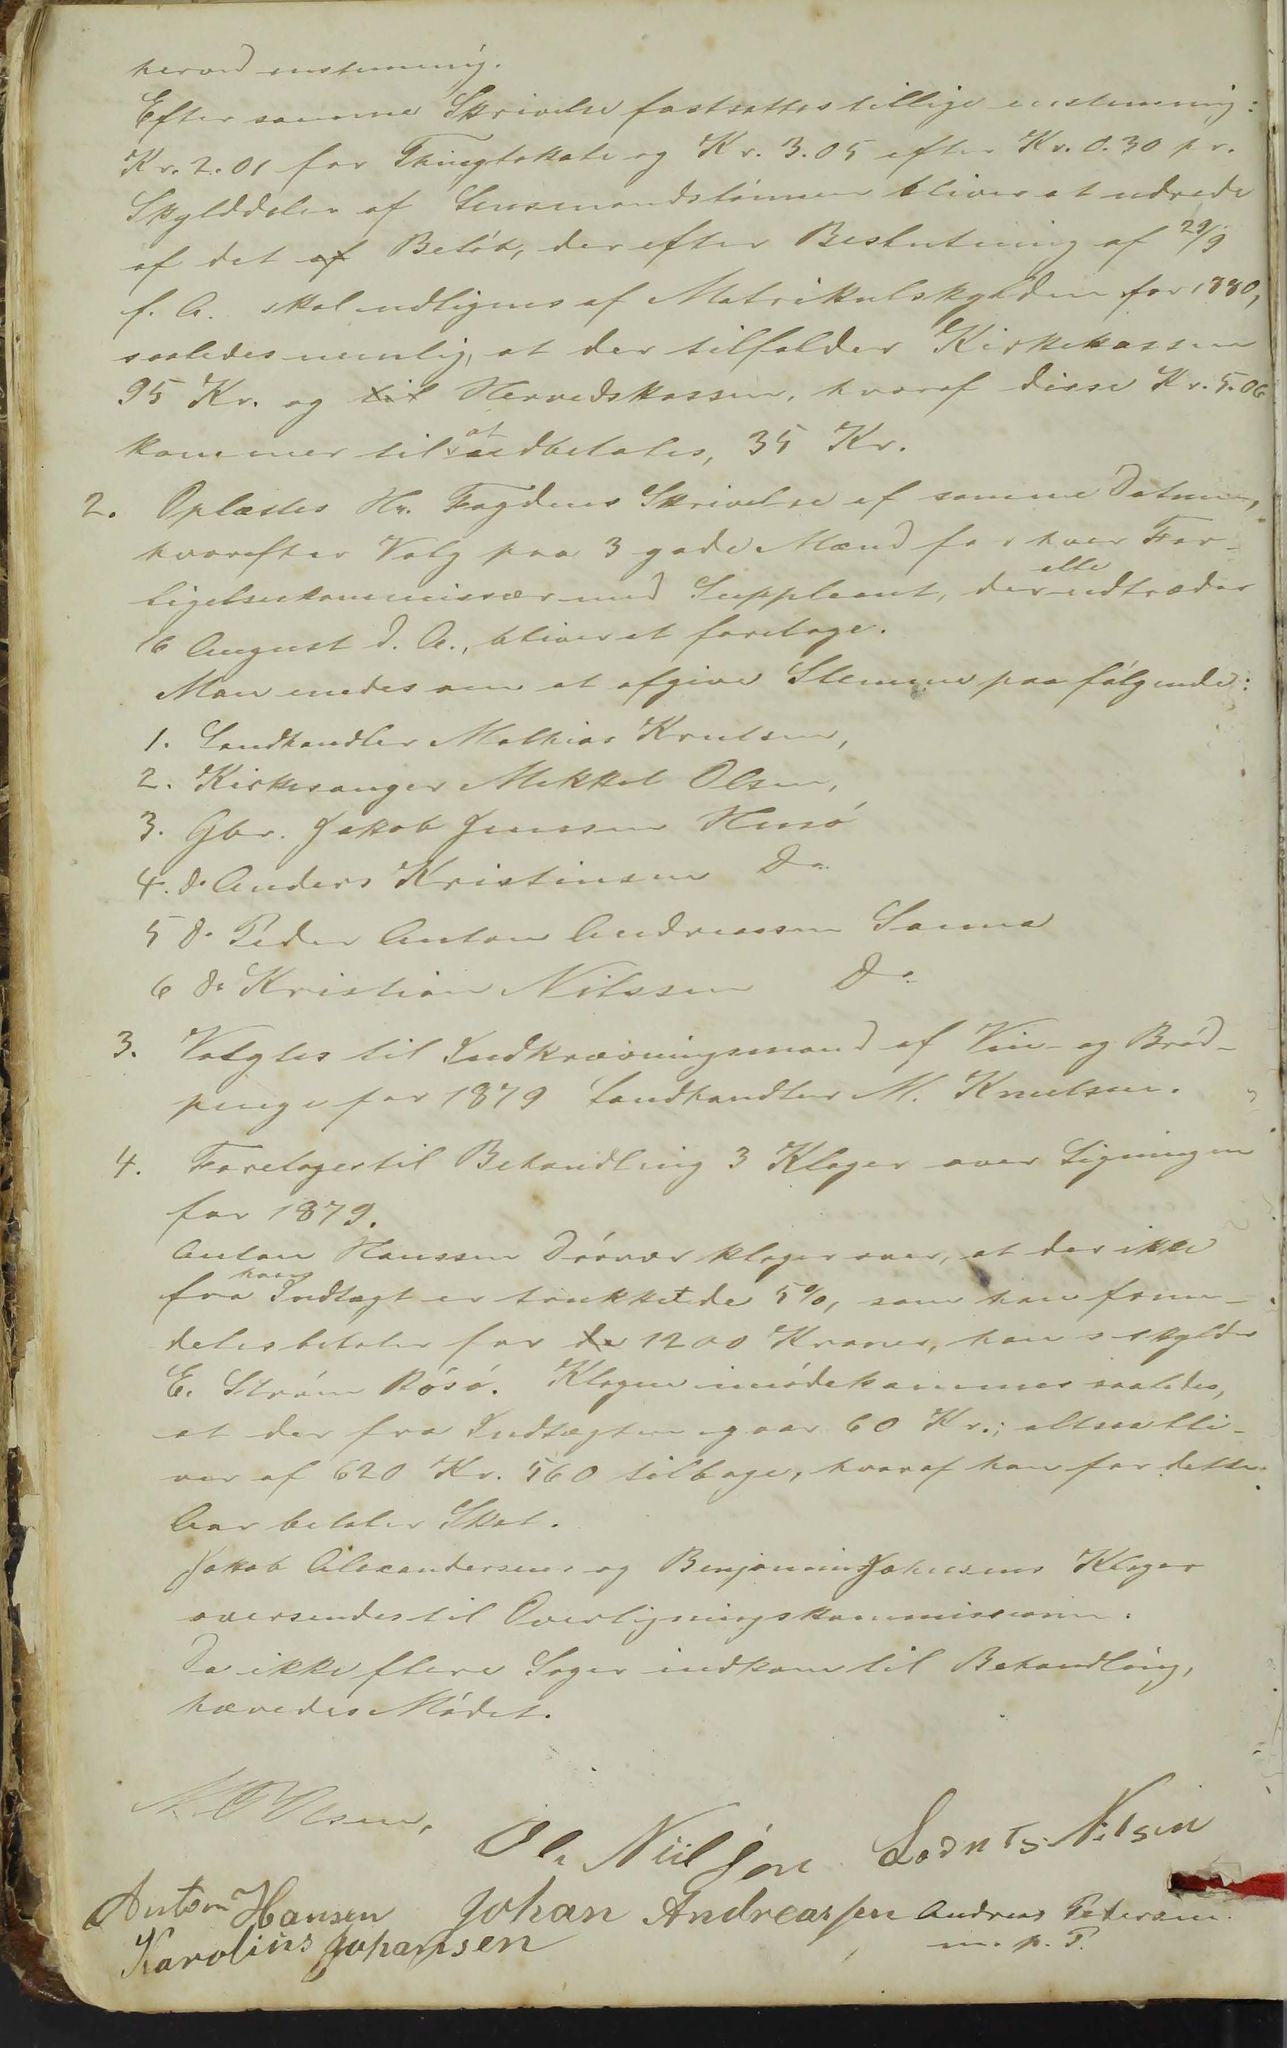 herved enstemmig.
Efter samme Skrivelse fastsattes tillige enstemmig:
Kr. 2.01 for Thinglokale og Kr. 3.05 efter Kr. 0.30 pr.
Skylddaler af Lensmandstönnen bliver at udrede
af det af Belöb, der efter Beslutning af 29/9
f. A. skal udlignes af Matrikulskylden for 1880,
saaledes nemlig, at der tilfalder Kirkekassen
95 Kr. og til Herredskassen, hvoraf disse Kr. 5.06
kommer til at udbetales, 35 Kr.
2. Oplæstes Hr. Fogdens Skrivelse af samme Datum,
hvorefter Valg paa 3 gode Mænd for hver For-
ligelseskommissær med Suppleant, der elle udtræder
16 August d. A., bliver at foretage.
Man enedes om at afgive Stemme paa fölgende:
1. Landhandler Mathias Knutsen,
2. Kirkesanger Mekkel Olsen,
3. Gbr. Jakob Jenssen Husö
4. do Anders Kristinsen Do
5 do Peder Anton Andreassen Sanna
6 do Kristian Nilssen Do
3. Valgtes til Indkrævningsmand af Vin- og Bröd-
penge for 1879 Landhandler M. Knutsen.
4. Foretoges til Behandling 3 Klager over Ligningen
for 1879.
Anton Hanssen Dörvær klager over, at der ikke
fra hans Indtægt er trukket de 5%, som han frem-
deles betaler for de 1200 Kroner, han skylder
E. Ström Rösö. Klagen imödekommes saaledes,
at der fra Indtægten gaar 60 Kr.; altsaa bli-
ver af 620 Kr. 560 tilbage, hvoraf han for dette
Aar betaler Skat.
Jakob Alexandersens og Benjamin Johnsens Klager
oversendes til Overligningskommissionen.
Da ikke flere Sager indkom til Behandling,
hævedes Mödet.
M. Olsen,
Ole Niilsen Lornts Nilsen
Anton Hansen Johan Andreassen Andreas Petersen
Karolius Johansen m. p. P.